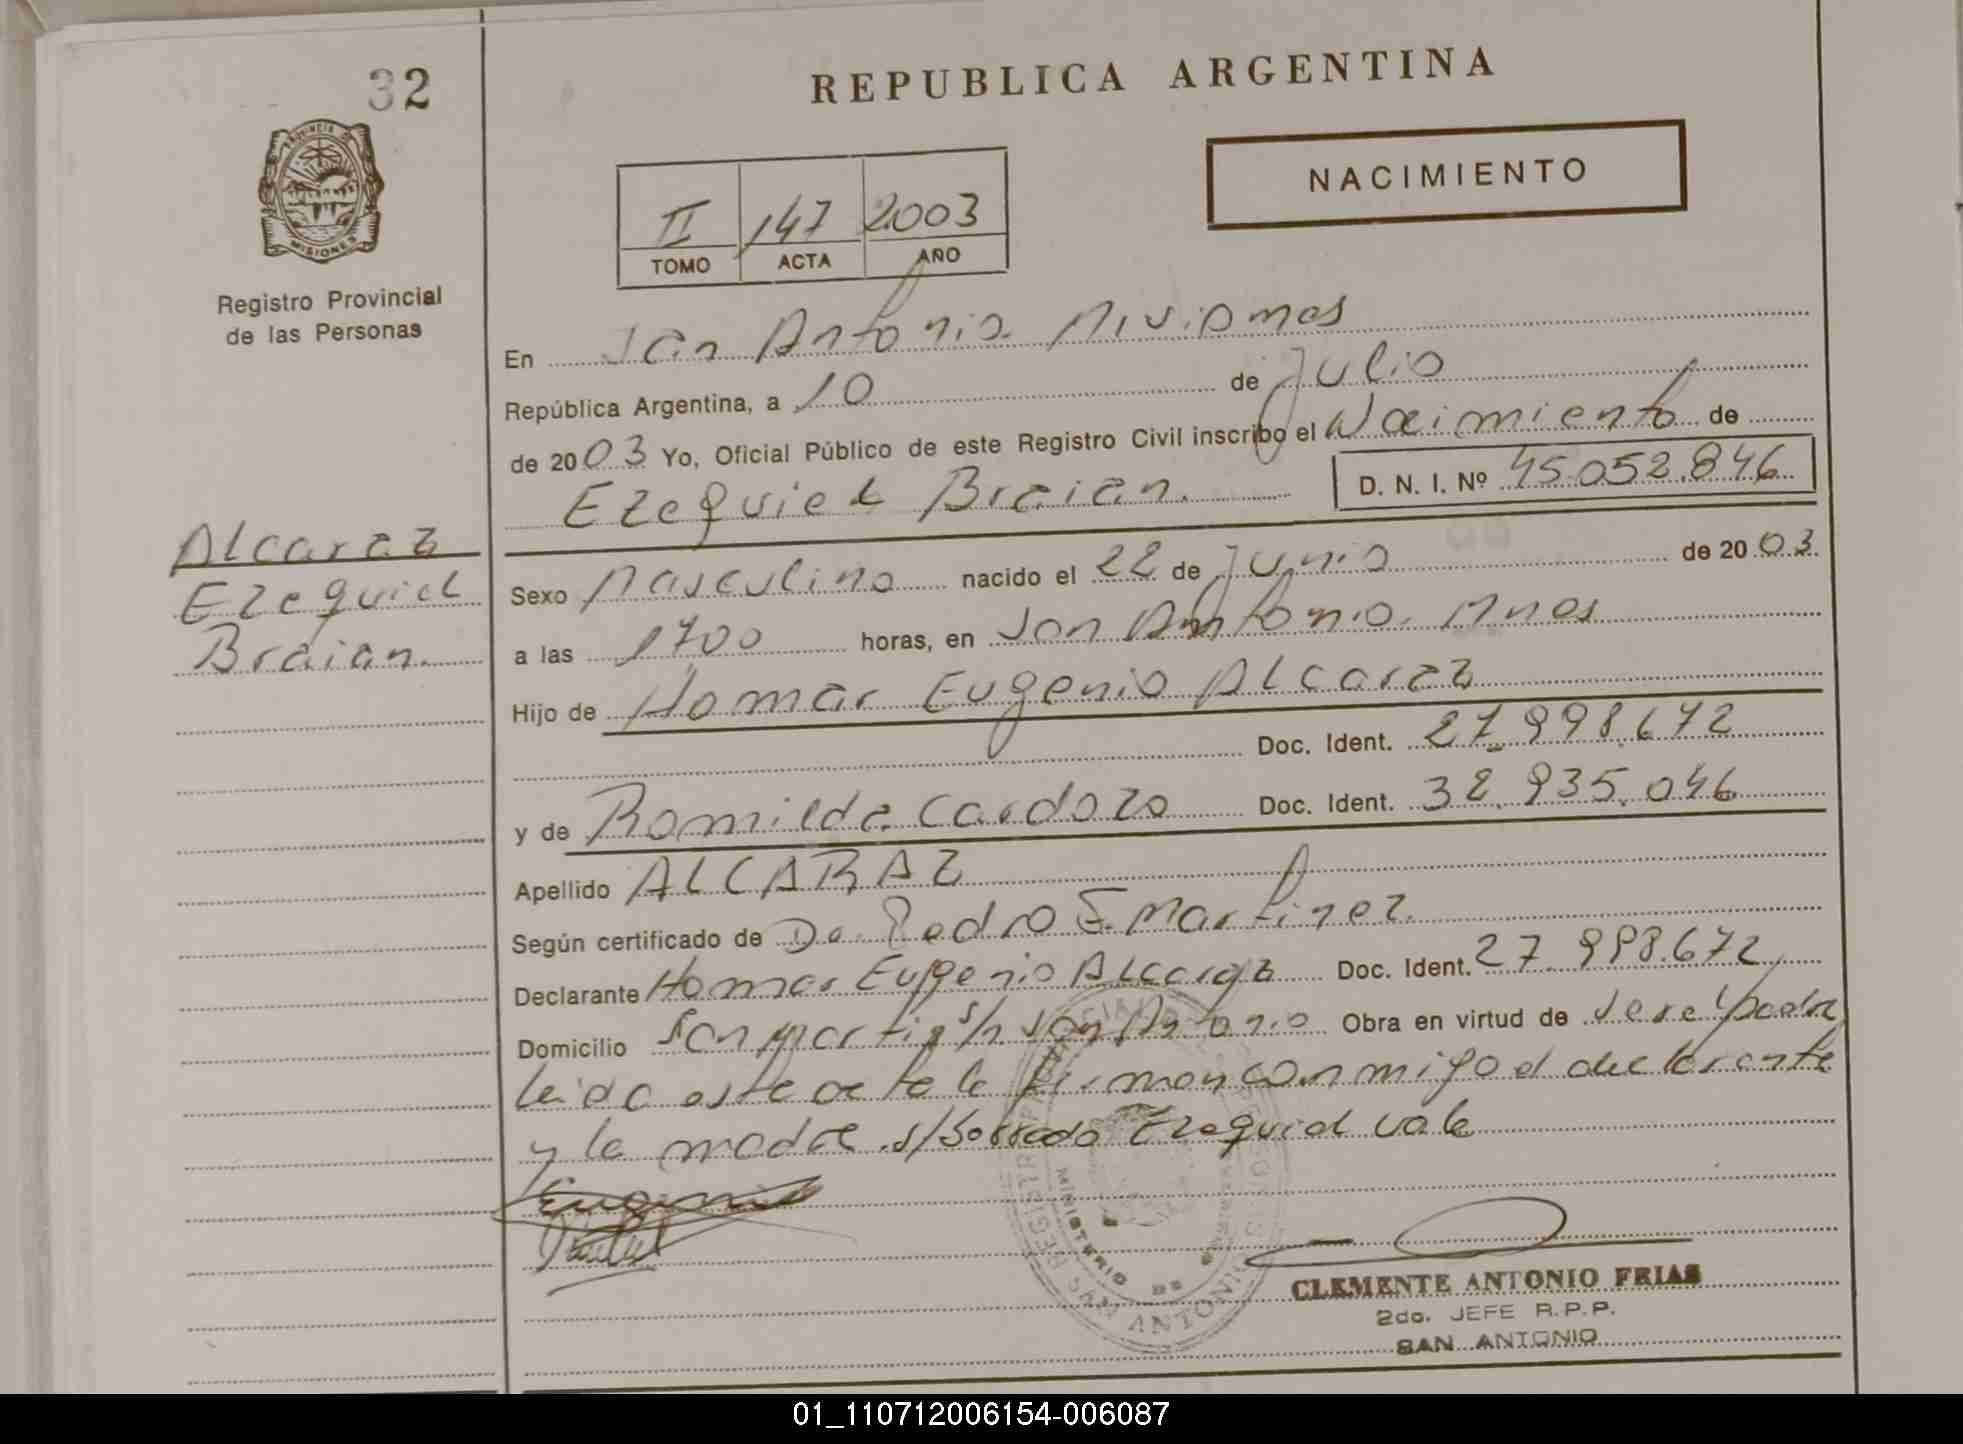 32
REPUBLICA ARGENTINA
PROVINCIA DE MISIONES
NACIMIENTO
II 147 2003
TOMO ACTA AÑO
Registro Provincial
de las Personas
En San Antonio Misiones
República Argentina, a 10 de Julio
de 2003 Yo, Oficial Público de este Registro Civil inscribo el Nacimiento de
Ezequiel Braian. D. N. I. Nº 45.052.846
Alcaraz
Ezequiel
Braian.
Sexo Masculino nacido el 22 de Junio de 2003.
a las 1700 horas, en San Antonio. Mnes
Hijo de Homar Eugenio Alcaraz
Doc. Ident. 27.998.672
y de Romilda Cardozo Doc. Ident. 32.935.046
Apellido ALCARAZ
Según certificado de Dr. Pedro E. Martinez.
Declarante Homar Eugenio Alcaraz Doc. Ident. 27.998.672
Domicilio San Martin s/n San Antonio Obra en virtud de
leida este acta la firman conmigo el declarante
y la madre. s/borrado Ezequiel vale
MINISTERIO DE
SAN ANTONIO
CLEMENTE ANTONIO FRIAS
2do. JEFE R.P.P.
SAN ANTONIO
01_110712006154-006087